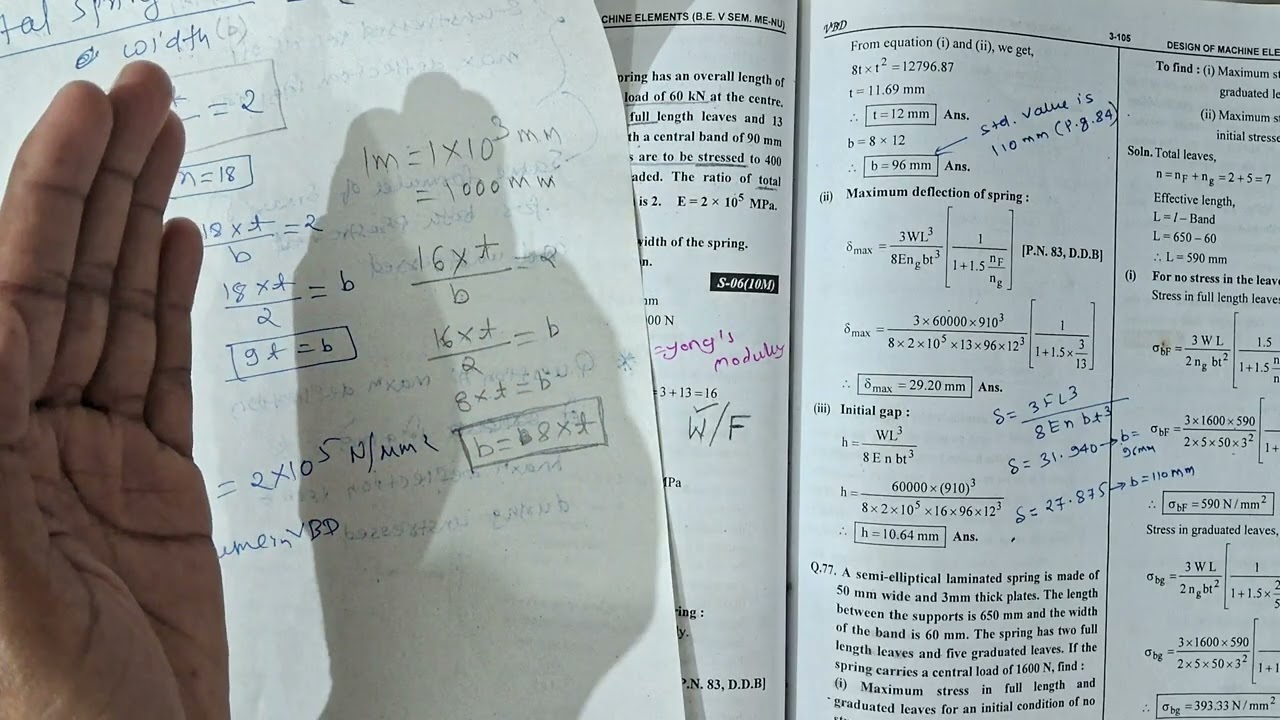 tal spring
width (b)
= 2
n = 18
18 × t / b = 2
18 × t / 2 = b
9t = b
1m = 1 × 10³ mm
= 1000 mm
16 × t / b = 2
16 × t / 2 = b
8 × t = b
b = 8 × t
= 2 × 10⁵ N/mm²
VBD
CHINE ELEMENTS (B.E. V SEM. ME-NU)
pring has an overall length of
load of 60 kN at the centre.
full length leaves and 13
th a central band of 90 mm
s are to be stressed to 400
aded. The ratio of total
is 2. E = 2 × 10⁵ MPa.
width of the spring.
n.
S-06(10M)
nm
00 N
= yong's
modulus
= 3 + 13 = 16
W/F
MPa
ring :
y.
P.N. 83, D.D.B]
VBD
3-105
DESIGN OF MACHINE ELE
From equation (i) and (ii), we get,
8t × t² = 12796.87
t = 11.69 mm
∴ t = 12 mm Ans.
b = 8 × 12
b = 96 mm Ans.
std. value is
110 mm (P.g.84)
(ii) Maximum deflection of spring :
δmax = 3WL³ / 8Engbt³ [1 / 1 + 1.5 nF/ng] [P.N. 83, D.D.B]
δmax = 3 × 60000 × 910³ / 8 × 2 × 10⁵ × 13 × 96 × 12³ [1 / 1 + 1.5 × 3/13]
∴ δmax = 29.20 mm Ans.
(iii) Initial gap :
h = WL³ / 8 E n bt³
h = 60000 × (910)³ / 8 × 2 × 10⁵ × 16 × 96 × 12³
∴ h = 10.64 mm Ans.
δ = 3FL3 / 8En bt³
δ = 31.940 → b = 96mm
δ = 27.875 → b = 110mm
Q.77. A semi-elliptical laminated spring is made of
50 mm wide and 3mm thick plates. The length
between the supports is 650 mm and the width
of the band is 60 mm. The spring has two full
length leaves and five graduated leaves. If the
spring carries a central load of 1600 N, find :
(i) Maximum stress in full length and
graduated leaves for an initial condition of no
To find : (i) Maximum st
graduated le
(ii) Maximum st
initial stress
Soln. Total leaves,
n = nF + ng = 2 + 5 = 7
Effective length,
L = l – Band
L = 650 – 60
∴ L = 590 mm
(i) For no stress in the leave
Stress in full length leaves
σbF = 3 W L / 2 ng bt² [1.5 / 1 + 1.5
σbF = 3 × 1600 × 590 / 2 × 5 × 50 × 3² [
∴ σbF = 590 N / mm²
Stress in graduated leaves,
σbg = 3 W L / 2 ng bt² [1 / 1 + 1.5 ×
σbg = 3 × 1600 × 590 / 2 × 5 × 50 × 3² [
∴ σbg = 393.33 N / mm²